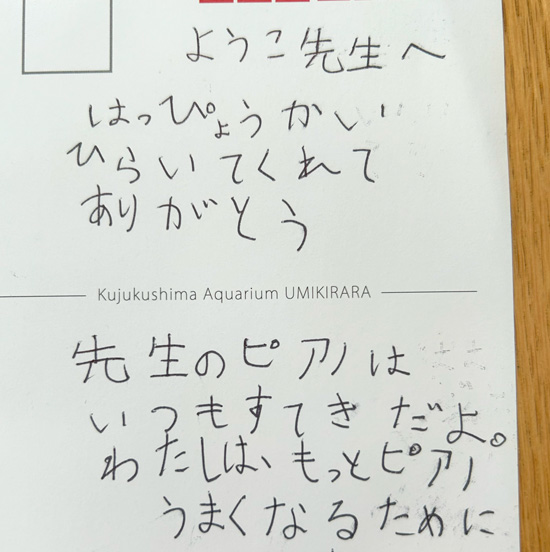 ようこ先生へ
はっぴょうかい
ひらいてくれて
ありがとう
Kujukushima Aquarium UMIKIRARA
先生のピアノは
いつもすてきだよ。
わたしは、もっとピアノ
うまくなるために